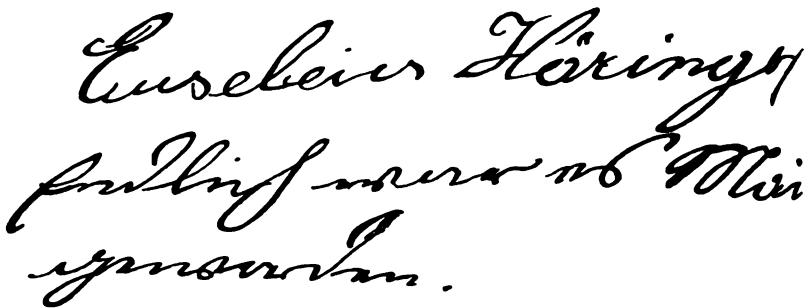 Eusebeius Häring
Endlich war es Mai
geworden.